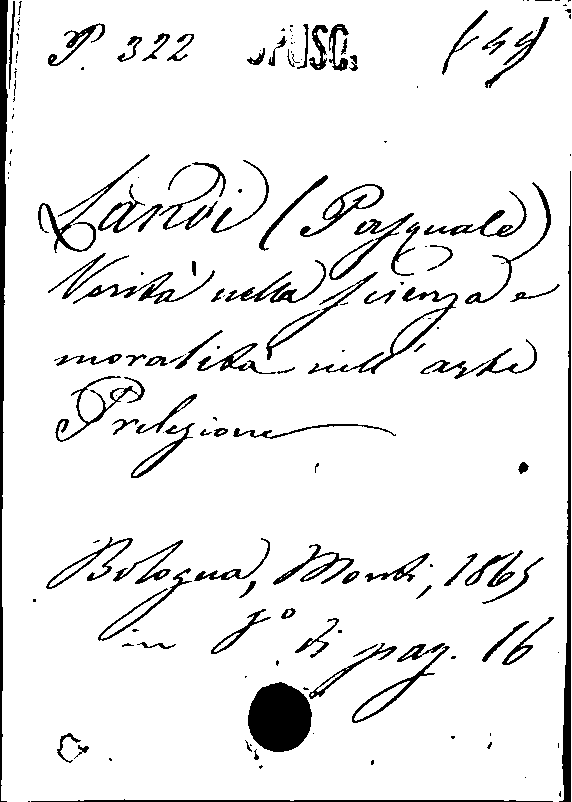 P. 322 OPUSC. (59)
Landi (Pasquale)
Verità nella scienza e
moralità nell'arte
Prelezione
Bologna, Monti, 1865
in 8º di pag. 16